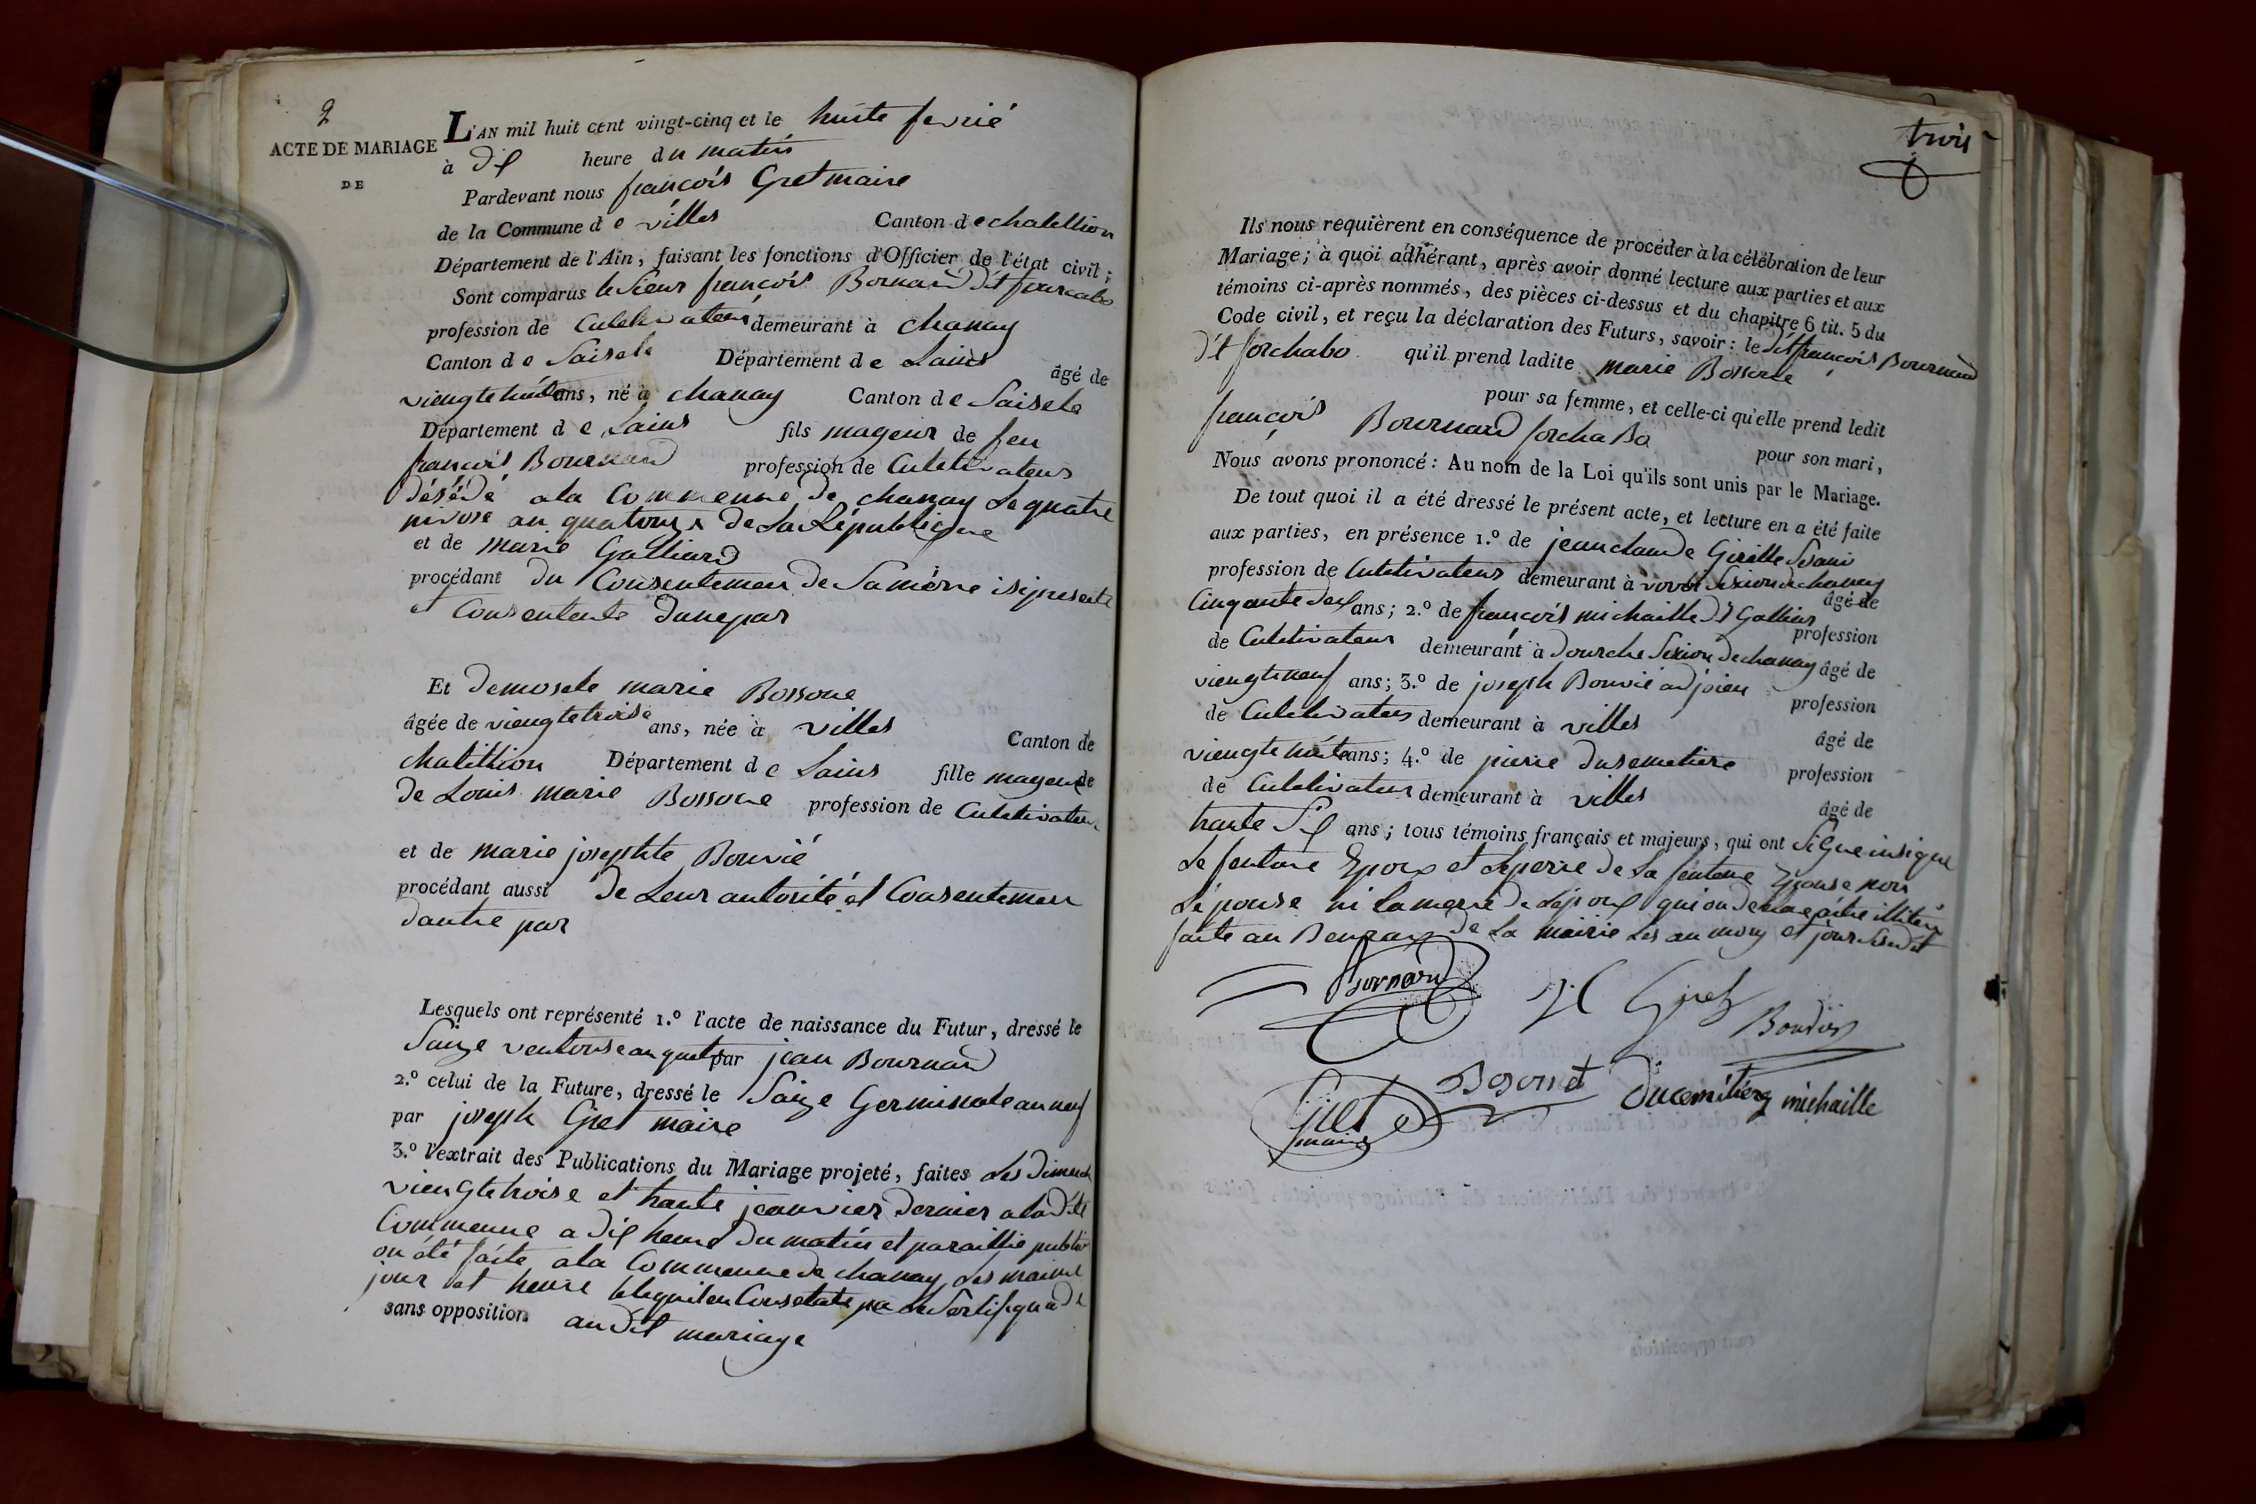 2
ACTE DE MARIAGE
DE
L'AN mil huit cent vingt-cinq et le huite fevrié
à dix heure du matin
Pardevant nous françois Gret maire
de la Commune de villes Canton de chatillion
Département de l'Ain, faisant les fonctions d'Officier de l'état civil;
Sont comparus le Sieur françois Bornard dit
profession de Culetivateur demeurant à chanay
Canton de Saisele Département de Lains âgé de
viengtehuite ans, né à chanay Canton de Saisele
Département de Lains fils mageur de feu
françois Bournard profession de Culetivateur
désédé ala Commenne de chanay Le quatre
nivose an quatorze de La République
et de marie Galliard
procédant du Consentemen de Sa merre isi presente
et Consentente dune par
Et demosele marie Bossone
âgée de viengtetroise ans, née à villes Canton de
chatillion Département de Lains fille mageure de
de Louis marie Bossone profession de Culetivateur
et de marie josephte Bouvié
procédant aussi de Leur autorité et Consentemen
dautre par
Lesquels ont représenté 1.º l'acte de naissance du Futur, dressé le
Saize ventouse an par jean Bournard
2.º celui de la Future, dressé le Saize Germinale an neuf
par joseph Gret maire
3.º l'extrait des Publications du Mariage projeté, faites Les dimench
viengtetroise et trante jeanvier dernier aladite
Commenne a dix heure du matin et paraillie
on été faite ala Commenne de chanay Les maime
jour et heure
sans opposition au dit mariage
trois
Ils nous requièrent en conséquence de procéder à la célébration de leur
Mariage; à quoi adhérant, après avoir donné lecture aux parties et aux
témoins ci-après nommés, des pièces ci-dessus et du chapitre 6 tit. 5 du
Code civil, et reçu la déclaration des Futurs, savoir: le dit françois Bournard
dit forchabo qu'il prend ladite marie Bossone
pour sa femme, et celle-ci qu'elle prend ledit
françois Bournard forchabo
pour son mari,
Nous avons prononcé: Au nom de la Loi qu'ils sont unis par le Mariage.
De tout quoi il a été dressé le présent acte, et lecture en a été faite
aux parties, en présence 1.º de jean claude
profession de Culetivateur demeurant à Sexion de chanay
âgé de
Cinqante dex ans; 2.º de françois michaille dt Gallier
profession
de Culetivateur demeurant à dourche Sexion de chanay âgé de
viengteneuf ans; 3.º de joseph Bouvié adjoien
profession
de Culetivateur demeurant à villes
âgé de
viengte huite ans; 4.º de pierre dusemetiere
profession
de Culetivateur demeurant à villes
âgé de
trante Six ans; tous témoins français et majeurs, qui ont Signe
Le fouture Epoux et Leperre de La fouture Epouse non
Lépouse ni La merre de Lépoux qui on
faite au Beuraux de La mairie Les an mois et jour Susdit
Bornard
JC Giret
Bouvier
Gret
maire
Bosonet
Ducemetiere michaille